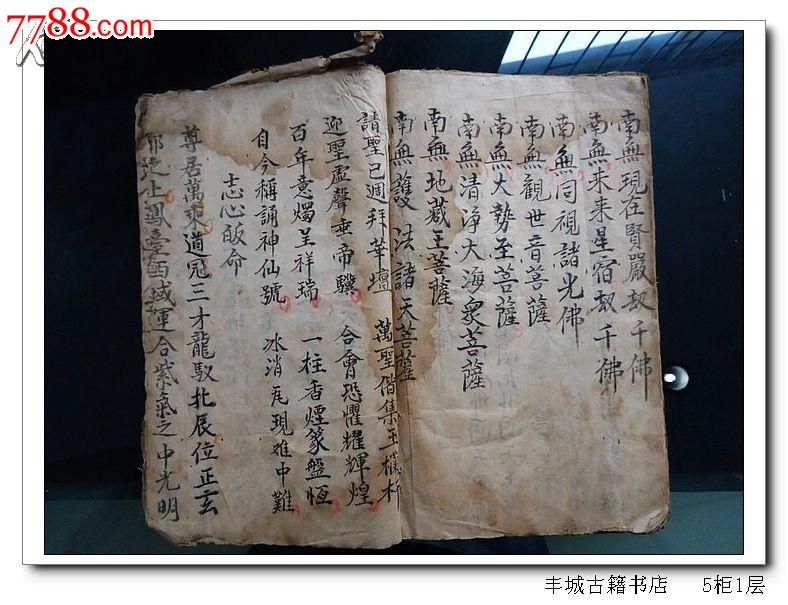 7788.com
南無現在賢嚴劫千佛
南無未来星宿劫千佛
南無同視諸光佛
南無觀世音菩薩
南無大勢至菩薩
南無清浄大海衆菩薩
南無地藏王菩薩
南無護法諸天菩薩
諸聖已週拜華壇 萬聖偕集玉
迎聖虛聲垂帝驥 合會恐懼耀輝煌
百年意燭呈祥瑞 一柱香煙篆盤恆
自今稱誦神仙號 冰消瓦現难中難
志心皈命
尊居萬乘道冠三才龍馭北辰位正玄
都 西域運合紫氣之中光明
丰城古籍书店 5柜1层